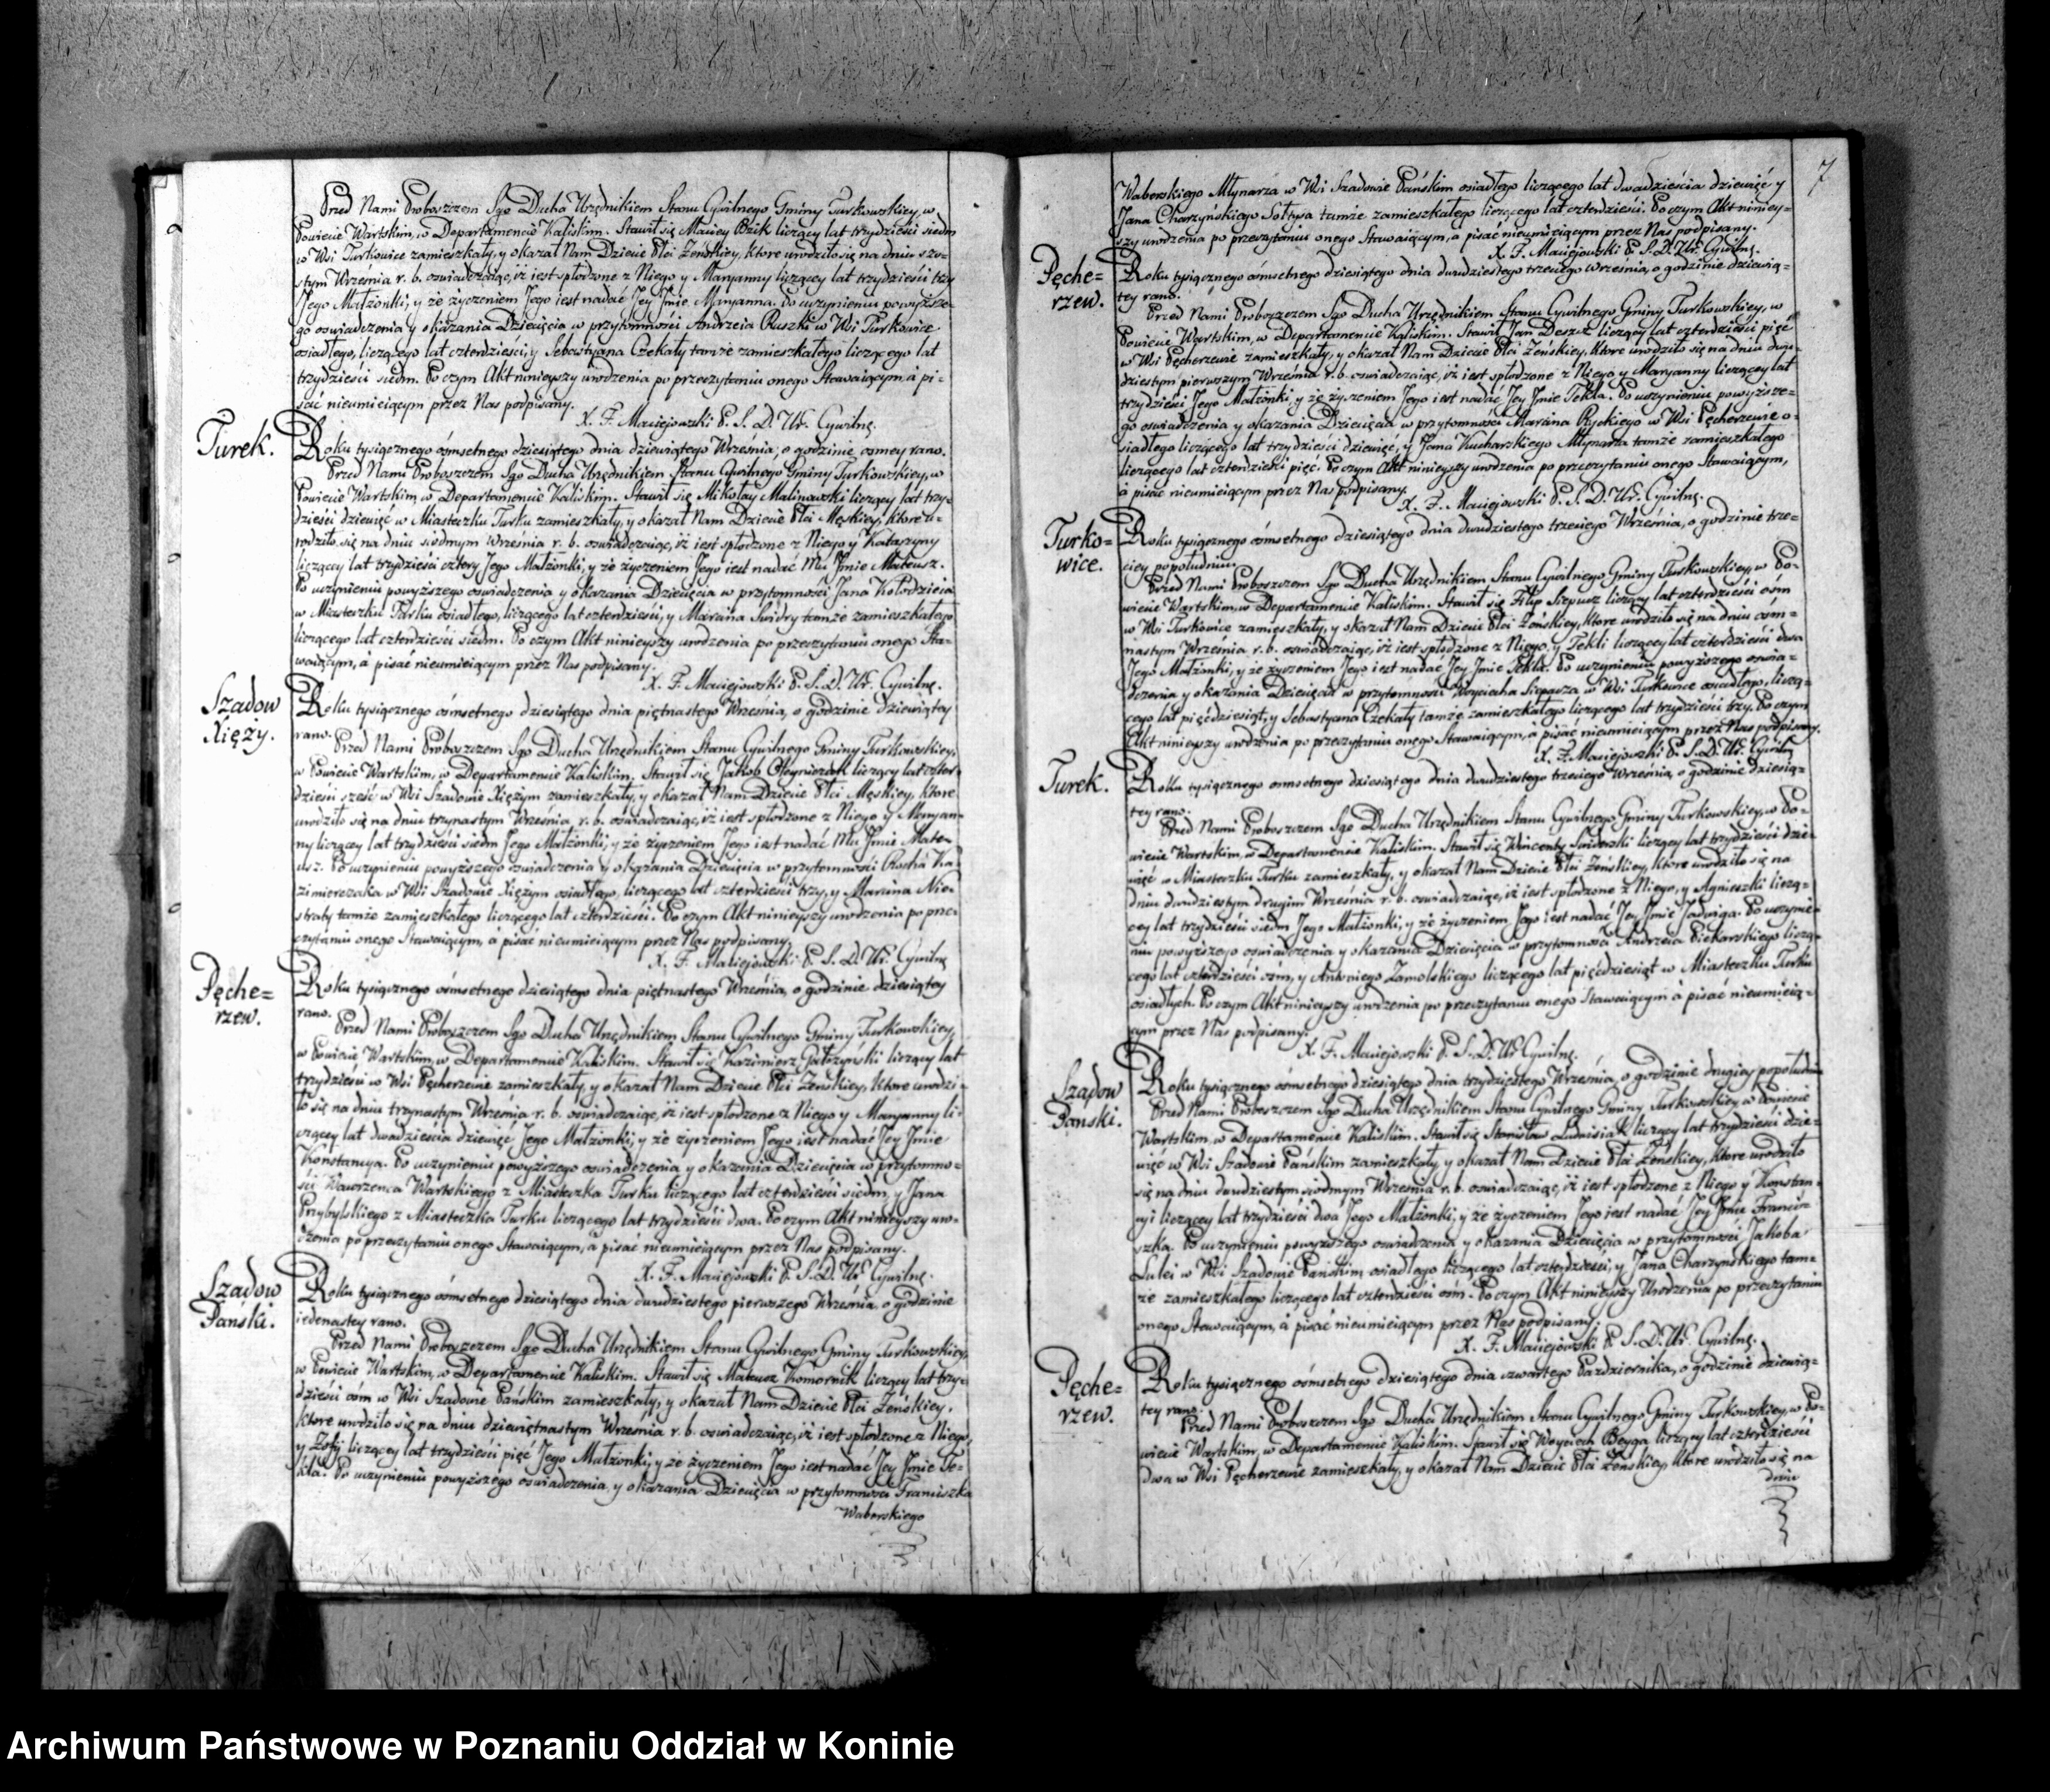 Przed Nami Proboszczem Sgo Ducha Urzędnikiem Stanu Cywilnego Gminy Turkowskiey, w
Powiecie Wartskim, w Departamencie Kaliskim. Stawił się Maciey Bzik liczący lat trzydzieści siedm
w Wsi Turkowice zamieszkały, y okazał Nam Dziecie Płci Żeńskiey, ktore urodziło się na dniu szo-
stym Września r. b. oswiadczaiąc, iż iest spłodzone z Niego y Maryanny liczący lat trzydzieści trzy
Jego Małżonki, y że życzeniem Jego iest nadać Jey Jmie Maryanna. Po uczynieniu powyższe-
go oswiadczenia y okazania Dziecięcia w przytomności Andrzeia Ruszki w Wsi Turkowice
osiadłego, liczącego lat czterdzieści, y Sebastyana Czekały tamże zamieszkałego liczącego lat
trzydzieści siedm. Po czym Akt ninieyszy urodzenia po przeczytaniu onego Stawaiącym, à pi-
sać nieumieiącym przez Nas podpisany.
X. F. Maciejowski P. S. D. Ur. Cywilnę.
Turek.
Roku tysiącznego ośmsetnego dziesiątego dnia dziewiątego Września, o godzinie osmey rano.
Przed Nami Proboszczem Sgo Ducha Urzędnikiem Stanu Cywilnego Gminy Turkowskiey, w
Powiecie Wartskim, w Departamencie Kaliskim. Stawił się Mikołay Malinowski liczący lat trzy-
dzieści dziewięć w Miasteczku Turku zamieszkały, y okazał Nam Dziecie Płci Męskiey, ktore u-
rodziło się na dniu siodmym Września r. b. oswiadczaiąc, iż iest spłodzone z Niego y Katarzyny
liczący lat trzydzieści cztery Jego Małżonki, y że życzeniem Jego iest nadać Mu Jmie Mateusz.
Po uczynieniu powyższego oswiadczenia y okazania Dziecięcia w przytomności Jana Kołodzieia
w Miasteczku Turku osiadłego, liczącego lat czterdzieści, y Marcina Swidry tamże zamieszkałego
liczącego lat czterdzieści siedm. Po czym Akt ninieyszy urodzenia po przeczytaniu onego Sta-
waiącym, à pisać nieumieiącym przez Nas podpisany.
X. F. Maciejowski P. S. D. Ur. Cywilnę.
Szadow
Xięży.
Roku tysiącznego ośmsetnego dziesiątego dnia piętnastego Września, o godzinie dziewiątey
rano.
Przed Nami Proboszczem Sgo Ducha Urzędnikiem Stanu Cywilnego Gminy Turkowskiey,
w Powiecie Wartskim, w Departamencie Kaliskim. Stawił się Jakob Oleyniczak liczący lat czter-
dzieści sześć w Wsi Szadowie Xiężym zamieszkały, y okazał Nam Dziecie Płci Męskiey, ktore
urodziło się na dniu trzynastym Września r. b. oswiadczaiąc, iż iest spłodzone z Niego y Maryan-
ny liczący lat trzydzieści siedm Jego Małżonki, y że życzeniem Jego iest nadać Mu Jmie Mate-
usz. Po uczynieniu powyższego oswiadczenia y okazania Dziecięcia w przytomności Rocha Ka-
zimierczaka w Wsi Szadowie Xiężym osiadłego, liczącego lat czterdzieści trzy, y Marcina Nie-
straty tamże zamieszkałego liczącego lat czterdzieści. Po czym Akt ninieyszy urodzenia po prze-
czytaniu onego Stawaiącym, à pisać nieumieiącym przez Nas podpisany.
X. F. Maciejowski P. S. D. Ur. Cywilnę
Pęche=
rzew.
Roku tysiącznego ośmsetnego dziesiątego dnia piętnastego Września, o godzinie dziesiątey
rano.
Przed Nami Proboszczem Sgo Ducha Urzędnikiem Stanu Cywilnego Gminy Turkowskiey,
w Powiecie Wartskim, w Departamencie Kaliskim. Stawił się Kazimierz Gałczyński liczący lat
trzydzieści w Wsi Pęcherzewie zamieszkały, y okazał Nam Dziecie Płci Żeńskiey, ktore urodzi-
ło się na dniu trzynastym Września r. b. oswiadczaiąc, iż iest spłodzone z Niego y Maryanny li-
czący lat dwadzieścia dziewięć Jego Małżonki, y że życzeniem Jego iest nadać Jey Jmie
Konstancya. Po uczynieniu powyższego oswiadczenia y okazania Dziecięcia w przytomno-
ści Wawrzeńca Wartskiego z Miasteczka Turku liczącego lat czterdzieści siedm, y Jana
Przybylskiego z Miasteczka Turku liczącego lat trzydzieści dwa. Po czym Akt ninieyszy uro-
dzenia po przeczytaniu onego Stawaiącym, à pisać nieumieiącym przez Nas podpisany.
X. F. Maciejowski P. S. D. Ur. Cywilnę.
Szadow
Pański.
Roku tysiącznego ośmsetnego dziesiątego dnia dwudziestego pierwszego Września, o godzinie
iedenastey rano.
Przed Nami Proboszczem Sgo Ducha Urzędnikiem Stanu Cywilnego Gminy Turkowskiey,
w Powiecie Wartskim, w Departamencie Kaliskim. Stawił się Mateusz Komornik liczący lat trzy-
dzieści osm w Wsi Szadowie Pańskim zamieszkały, y okazał Nam Dziecie Płci Żeńskiey,
ktore urodziło się na dniu dziewiętnastym Września r. b. oswiadczaiąc, iż iest spłodzone z Niego,
y Zofij liczący lat trzydzieści pięć Jego Małżonki, y że życzeniem Jego iest nadać Jey Jmie Te-
kla. Po uczynieniu powyższego oswiadczenia, y okazania Dziecięcia w przytomności Franciszka
Waberskiego
7
Waberskiego Młynarza w Wsi Szadowie Pańskim osiadłego liczącego lat dwadzieścia dziewięć y
Jana Charzyńskiego Sołtysa tamże zamieszkałego liczącego lat czterdzieści. Po czym Akt niniey-
szy urodzenia po przeczytaniu onego Stawaiącym, a pisać nieumieiącym przez Nas podpisany.
X. F. Maciejowski P. S. D. Ur. Cywilnę.
Pęche=
rzew.
Roku tysiącznego ośmsetnego dziesiątego dnia dwudziestego trzeciego Września, o godzinie dziewią-
tey rano.
Przed Nami Proboszczem Sgo Ducha Urzędnikiem Stanu Cywilnego Gminy Turkowskiey, w
Powiecie Wartskim, w Departamencie Kaliskim. Stawił Jan Deszcz liczący lat czterdzieści pięć
w Wsi Pęcherzewie zamieszkały, y okazał Nam Dziecie Płci Żeńskiey, ktore urodziło się na dniu dwu-
dziestym pierwszym Września r. b. oswiadczaiąc, iż iest spłodzone z Niego, y Maryanny liczący lat
trzydzieści Jego Małżonki, y że życzeniem Jego iest nadać Jey Jmie Tekla. Po uczynieniu powyższe-
go oswiadczenia y okazania Dziecięcia w przytomności Marcina Ryckiego w Wsi Pęcherzewie o-
siadłego liczącego lat trzydzieści dziewięć, y Jana Kucharskiego Młynarza tamże zamieszkałego
liczącego lat czterdzieści pięć. Po czym Akt ninieyszy urodzenia po przeczytaniu onego Stawaiącym,
à pisać nieumieiącym przez Nas podpisany.
X. F. Maciejowski P. S. D. Ur. Cywilnę.
Turko=
wice.
Roku tysiącznego ośmsetnego dziesiątego dnia dwudziestego trzeciego Września, o godzinie trze-
ciey popołudniu.
Przed Nami Proboszczem Sgo Ducha Urzędnikiem Stanu Cywilnego Gminy Turkowskiey, w Po-
wiecie Wartskim, w Departamencie Kaliskim. Stawił się Filip Siepacz liczący lat czterdzieści ośm
w Wsi Turkowice zamieszkały, y okazał Nam Dziecie Płci Żeńskiey, ktore urodziło się na dniu ośm-
nastym Września r. b. oswiadczaiąc, iż iest spłodzone z Niego, y Tekli liczący lat czterdzieści dwa
Jego Małżonki, y że życzeniem Jego iest nadać Jey Jmie Tekla. Po uczynieniu powyższego oswia-
dczenia y okazania Dziecięcia w przytomności Woyciecha Siepacza w Wsi Turkowice osiadłego, liczą-
cego lat pięćdziesiąt, y Sebastyana Czekały tamże zamieszkałego liczącego lat trzydzieści trzy. Po czym
Akt ninieyszy urodzenia po przeczytaniu onego Stawaiącym, a pisać nieumieiącym przez Nas podpisany.
X. F. Maciejowski P. S. D. Ur. Cywilnę
Turek.
Roku tysiącznego osmsetnego dziesiątego dnia dwudziestego trzeciego Września, o godzinie dziesią-
tey rano.
Przed Nami Proboszczem Sgo Ducha Urzędnikiem Stanu Cywilnego Gminy Turkowskiey, w Po-
wiecie Wartskim, w Departamencie Kaliskim. Stawił się Wincenty Swiderski liczący lat trzydzieści dzie-
więć w Miasteczku Turku zamieszkały, y okazał Nam Dziecie Płci Żeńskiey, ktore urodziło się na
dniu dwudziestym drugim Września r. b. oswiadczaiąc, iż iest spłodzone z Niego, y Agnieszki liczą-
cey lat trzydzieści siedm Jego Małżonki, y że życzeniem Jego iest nadać Jey Jmie Jadwiga. Po uczynie-
niu powyższego oswiadczenia y okazania Dziecięcia w przytomności Andrzeia Piekarskiego liczą-
cego lat czterdzieści osm, y Antoniego Zamolskiego liczącego lat pięćdziesiąt w Miasteczku Turku
osiadłych. Po czym Akt ninieyszy urodzenia po przeczytaniu onego Stawaiącym à pisać nieumieią-
cym przez Nas podpisany.
X. F. Maciejowski P. S. D. Ur Cywilnę.
Szadow
Pański.
Roku tysiącznego ośmsetnego dziesiątego dnia trzydziestego Września, o godzinie drugiey popołudniu
Przed Nami Proboszczem Sgo Ducha Urzędnikiem Stanu Cywilnego Gminy Turkowskiey w Powiecie
Wartskim, w Departamencie Kaliskim. Stawił się Stanisław Ludwisiak liczący lat trzydzieści dzie-
więć w Wsi Szadowie Pańskim zamieszkały, y okazał Nam Dziecie Płci Żeńskiey, ktore urodziło
się na dniu dwudziestym siodmym Września r. b. oswiadczaiąc, iż iest spłodzone z Niego y Konstan-
cyi liczący lat trzydzieści dwa Jego Małżonki, y że życzeniem Jego iest nadać Jey Jmie Franci-
szka. Po uczynieniu powyższego oswiadczenia y okazania Dziecięcia w przytomności Jakoba
Lulei w Wsi Szadowie Pańskim osiadłego liczącego lat czterdzieści, y Jana Charzyńskiego tam-
że zamieszkałego liczącego lat czterdzieści ośm. Po czym Akt ninieyszy Urodzenia po przeczytaniu
onego Stawaiącym, à pisać nieumieiącym przez Nas podpisany.
X. F. Maciejowski P. S. D. Ur. Cywilnę.
Pęche=
rzew.
Roku tysiącznego ośmsetnego dziesiątego dnia czwartego Pazdziernika, o godzinie dziewią-
tey rano.
Przed Nami Proboszczem Sgo Ducha Urzędnikiem Stanu Cywilnego Gminy Turkowskiey, w Po-
wiecie Wartskim, w Departamencie Kaliskim. Stawił się Woyciech Beyga liczący lat czterdzieści
dwa w Wsi Pęcherzewie zamieszkały, y okazał Nam Dziecie Płci Żeńskiey, ktore urodziło się na
dniu
Archiwum Państwowe w Poznaniu Oddział w Koninie